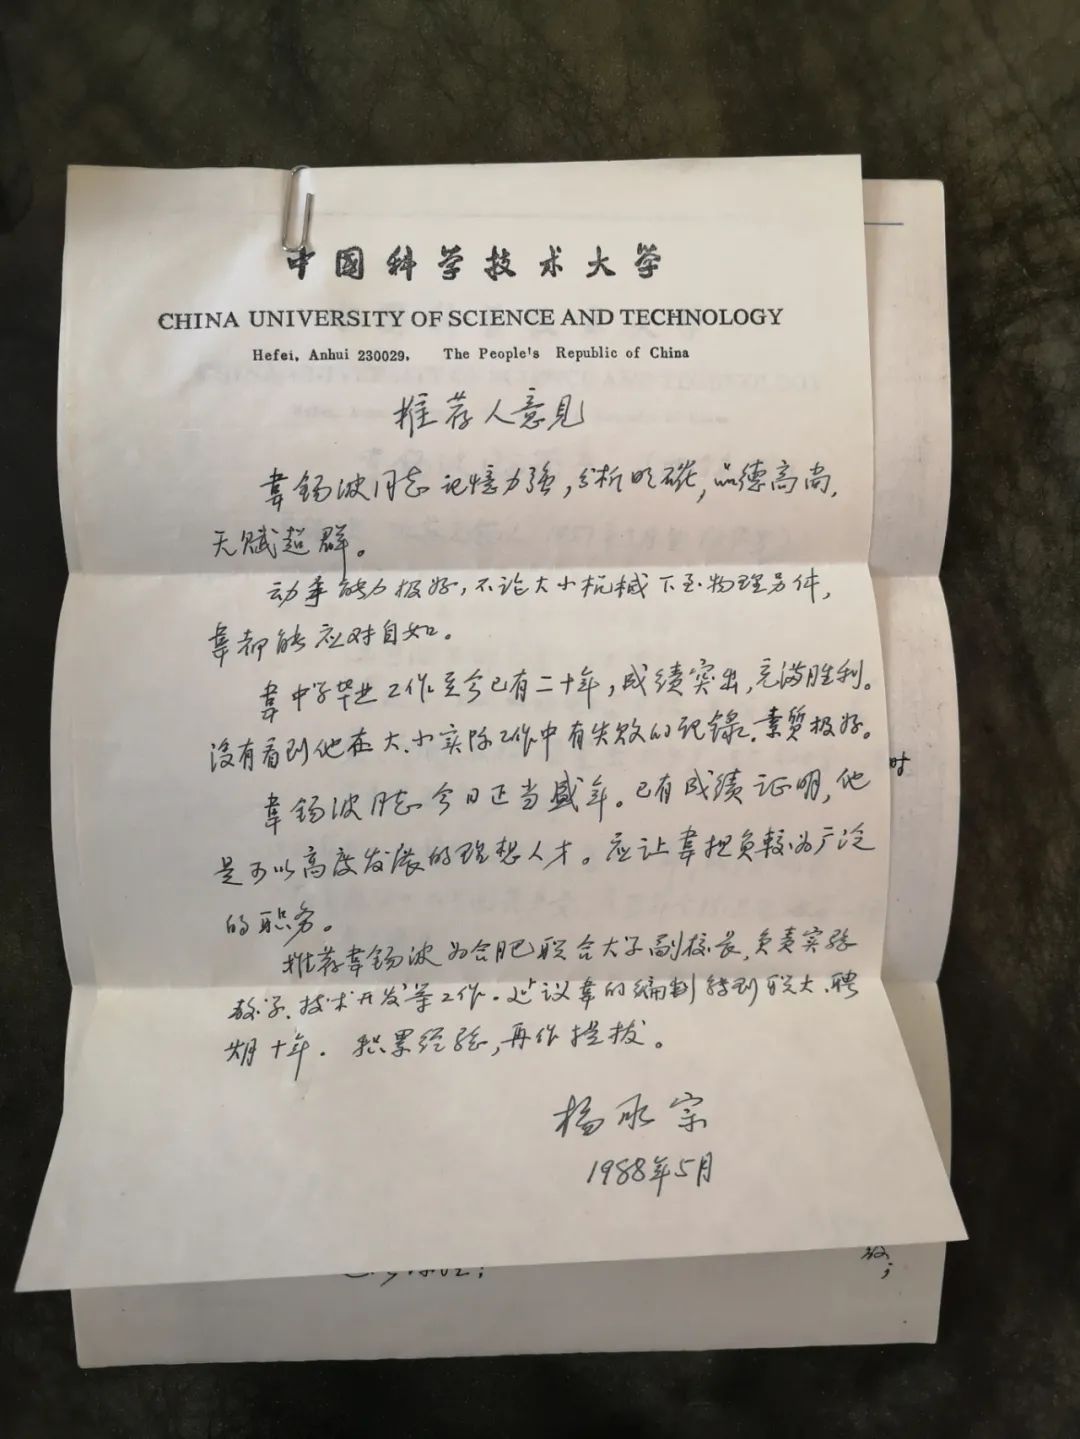 中国科学技术大学
CHINA UNIVERSITY OF SCIENCE AND TECHNOLOGY
Hefei, Anhui 230029, The People's Republic of China
推荐人意见
韦锡波同志记忆力强，分析明确，品德高尚，
天赋超群。
动手能力极好，不论大小机械下至物理另件，
韦都能应对自如。
韦中学毕业工作至今已有二十年，成绩突出，充满胜利。
没有看到他在大、小实际工作中有失败的纪录，素质极好。
韦锡波同志今日正当盛年。已有成绩证明，他
是可以高度发展的理想人才。应让韦担负较为广泛
的职务。
推荐韦锡波为合肥联合大学副校长，负责实验
教学、技术开发等工作。建议韦的编制转到联大、聘
期十年. 积累经验，再作提拔。
杨承宗
1988年5月
时